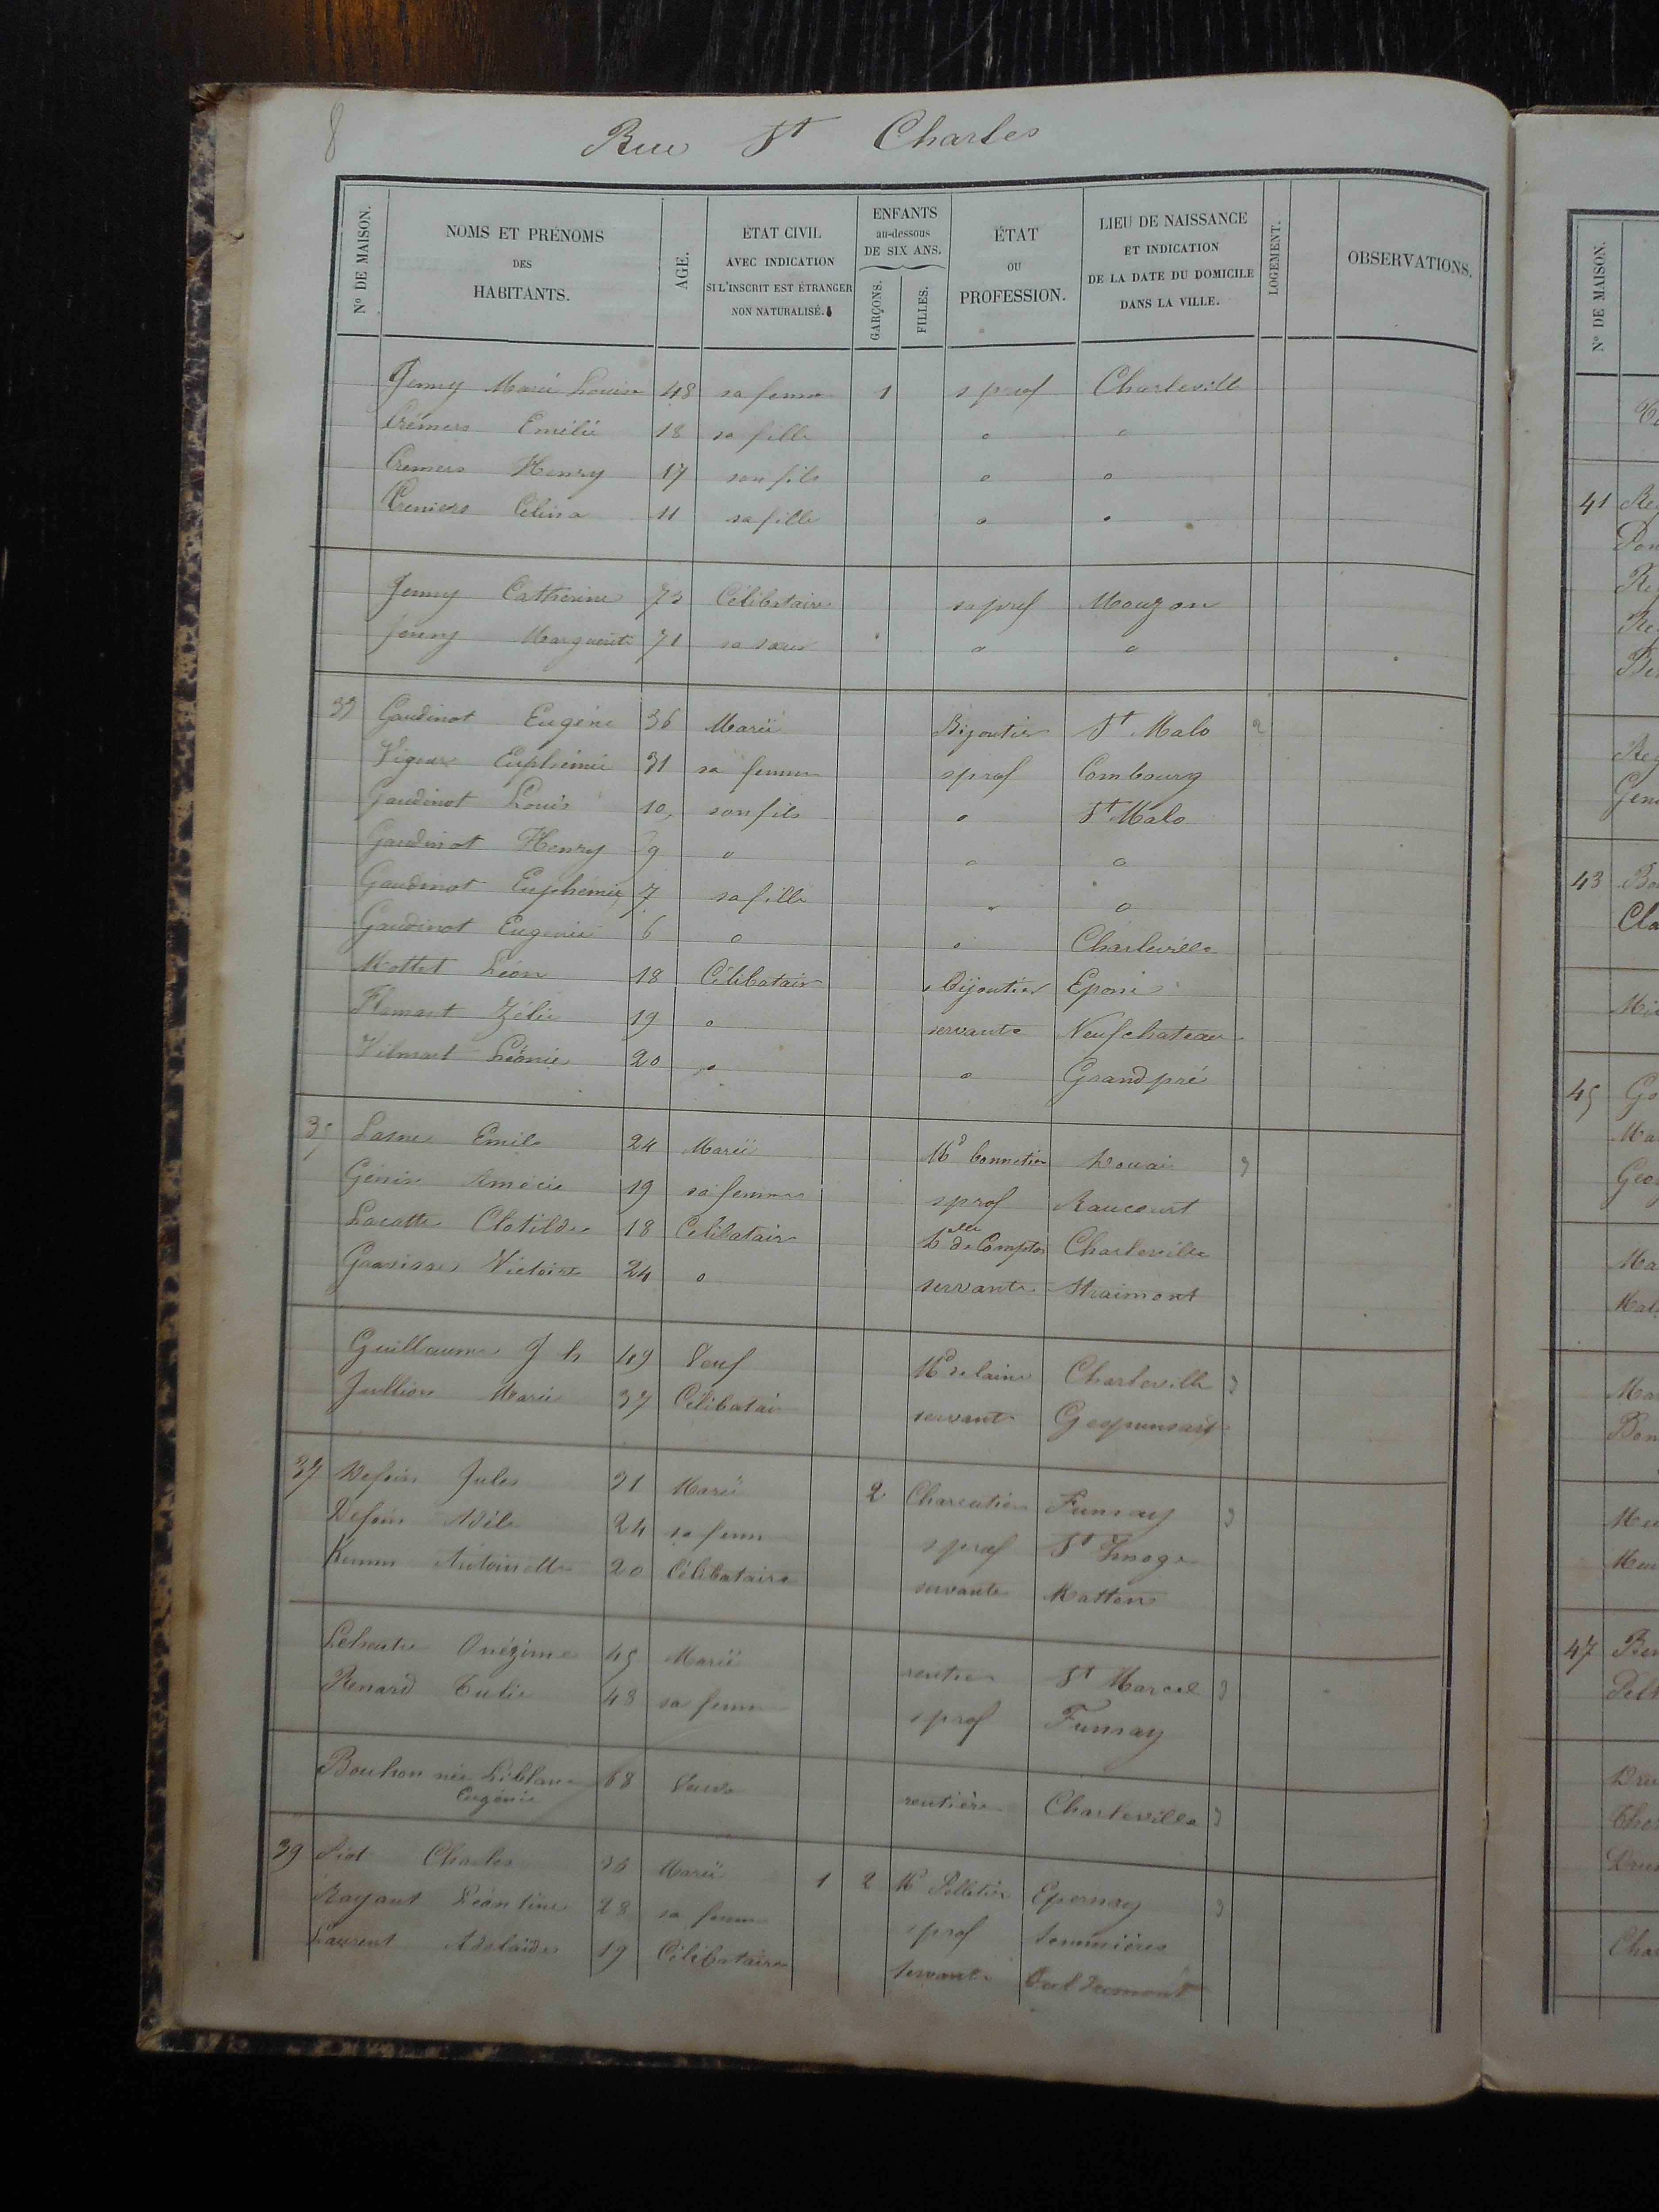 8
Rue St Charles
No DE MAISON.
NOMS ET PRÉNOMS
DES
HABITANTS.
AGE.
ÉTAT CIVIL
AVEC INDICATION
SI L'INSCRIT EST ÉTRANGER
NON NATURALISÉ.
ENFANTS
au-dessous
DE SIX ANS.
GARÇONS.
FILLES.
ÉTAT
OU
PROFESSION.
LIEU DE NAISSANCE
ET INDICATION
DE LA DATE DU DOMICILE
DANS LA VILLE.
LOGEMENT.
OBSERVATIONS.
Jenny Marie Louise 48 sa femme 1 s prof Charleville
Crémers Emélie 18 sa fille o o
Cremers Henry 17 son fils o o
Cremers Célina 11 sa fille o o
Jenny Catherine 73 Célibataire sa prof Mouzon
Jenny Marguerite 71 sa sœur o o
Gaudinot Eugène 36 Marié Bijoutier St Malo 2
Euphémie 31 sa femme s prof Combourg
Gaudinot Louis 10 son fils o St Malo
Gaudinot Henry 9 o o o
Gaudinot Euphémie 7 sa fille o o
Gaudinot Eugénie 6 o o Charleville
Mottet Léon 18 Célibataire Bijoutier
Flamart Zélie 19 o servante Neufchateau
Vilmart Léonie 20 o o Grandpré
Lasne Emile 24 Marié Md bonnetier Douai
Génin 19 sa femme s prof Raucourt
Lacatte Clotilde 18 Célibataire Dlle de Comptoir Charleville
Victoire 24 o servante Straimont
Guillaume J h 49 Veuf Md de laine Charleville
Jullion Marie 37 Célibataire servante Gespunsart
37 Defoin Jules 31 Marié 2 Charcutier Fumay
Defoin Adèle 24 sa femme s prof St Imoge
Antoinette 20 Célibataire servante Matton
Onézime 45 Marié rentier St Marcel
Renard Tulie 48 sa femme s prof Fumay
Bouhon née Leblanc 68 Veuve rentière Charleville
Eugénie
39 Piot Charles 36 Marié 1 2 Md Pelletier Epernay
Rayant Léontine 28 sa femme s prof
Laurent Adelaïde 19 Célibataire servante
No DE MAISON.
41
43
45
47